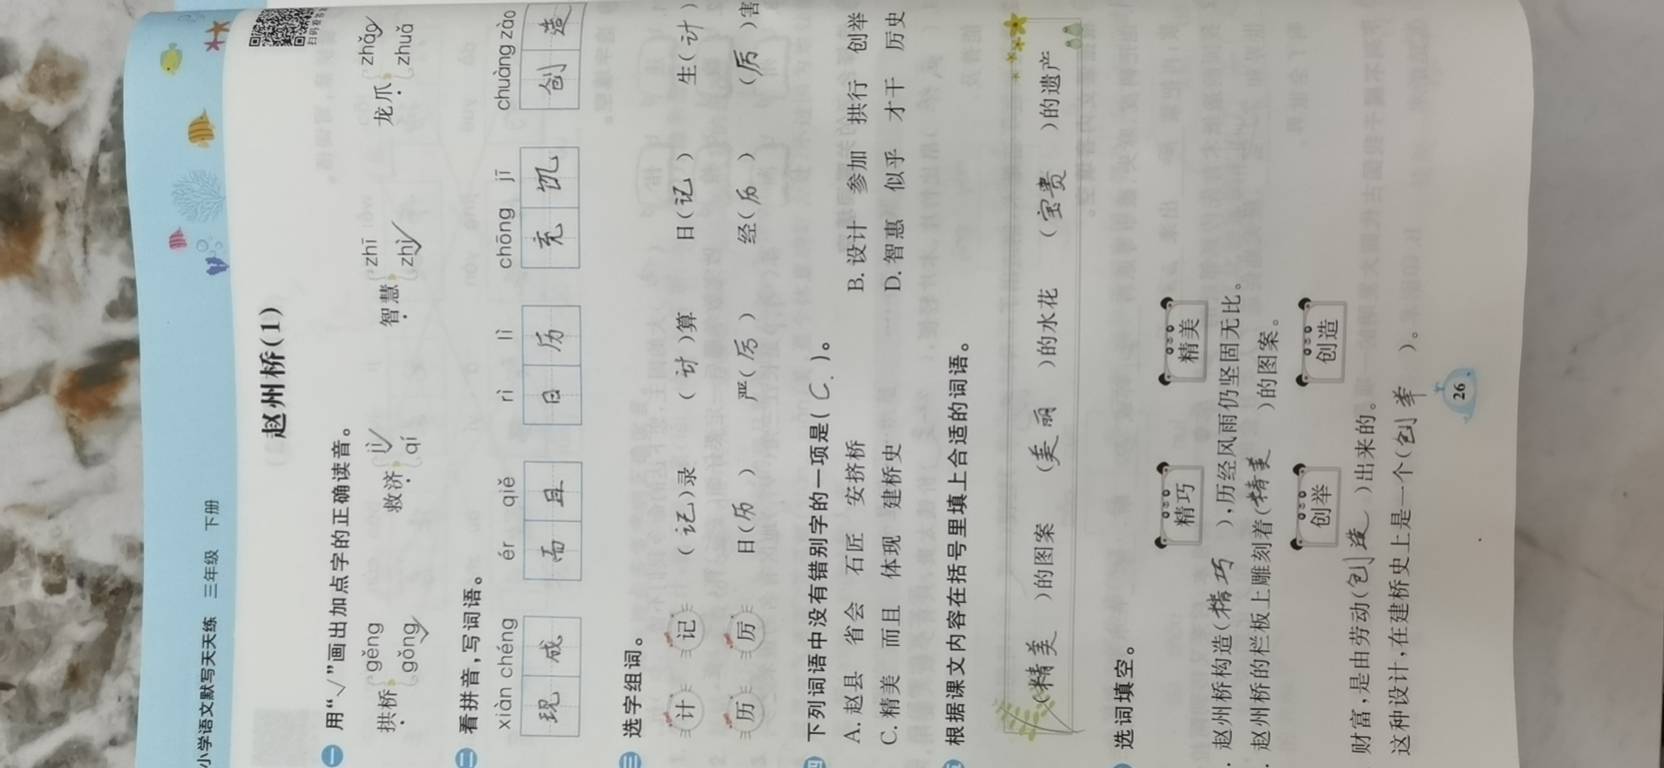 小学语文默写天天练 三年级 下册
扫码看答案
赵州桥(1)
一 用“√”画出加点字的正确读音。
拱桥 gěng gǒng√ 救济 jì√ qí 智慧 zhī zhì√ 龙爪 zhǎo√ zhuǎ
二 看拼音,写词语。
xiàn chéng ér qiě rì lì chōng jī chuàng zào
现成 而且 日历 充饥 创造
三 选字组词。
计 记 (记)录 (计)算 日(记) 生(计)
历 厉 日(历) 严(厉) 经(历) (厉)害
四 下列词语中没有错别字的一项是(C)。
A.赵县 省会 石匠 安挤桥 B.设计 参加 拱行 创举
C.精美 而且 体现 建桥史 D.智惠 似乎 才干 厉史
根据课文内容在括号里填上合适的词语。
(精美)的图案 (美丽)的水花 (宝贵)的遗产
选词填空。
精巧 精美
赵州桥构造(精巧),历经风雨仍坚固无比。
赵州桥的栏板上雕刻着(精美)的图案。
创举 创造
财富,是由劳动(创造)出来的。
这种设计,在建桥史上是一个(创举)。
26